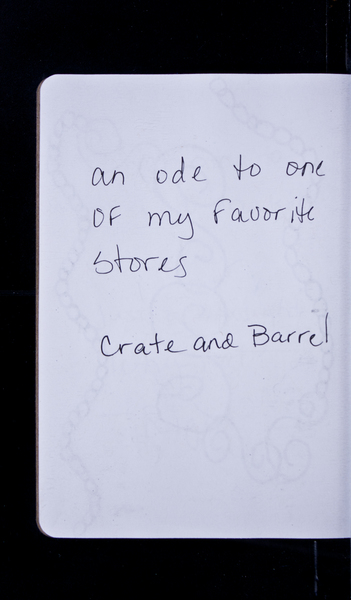 an ode to one
of my favorite
stores
Crate and Barrel